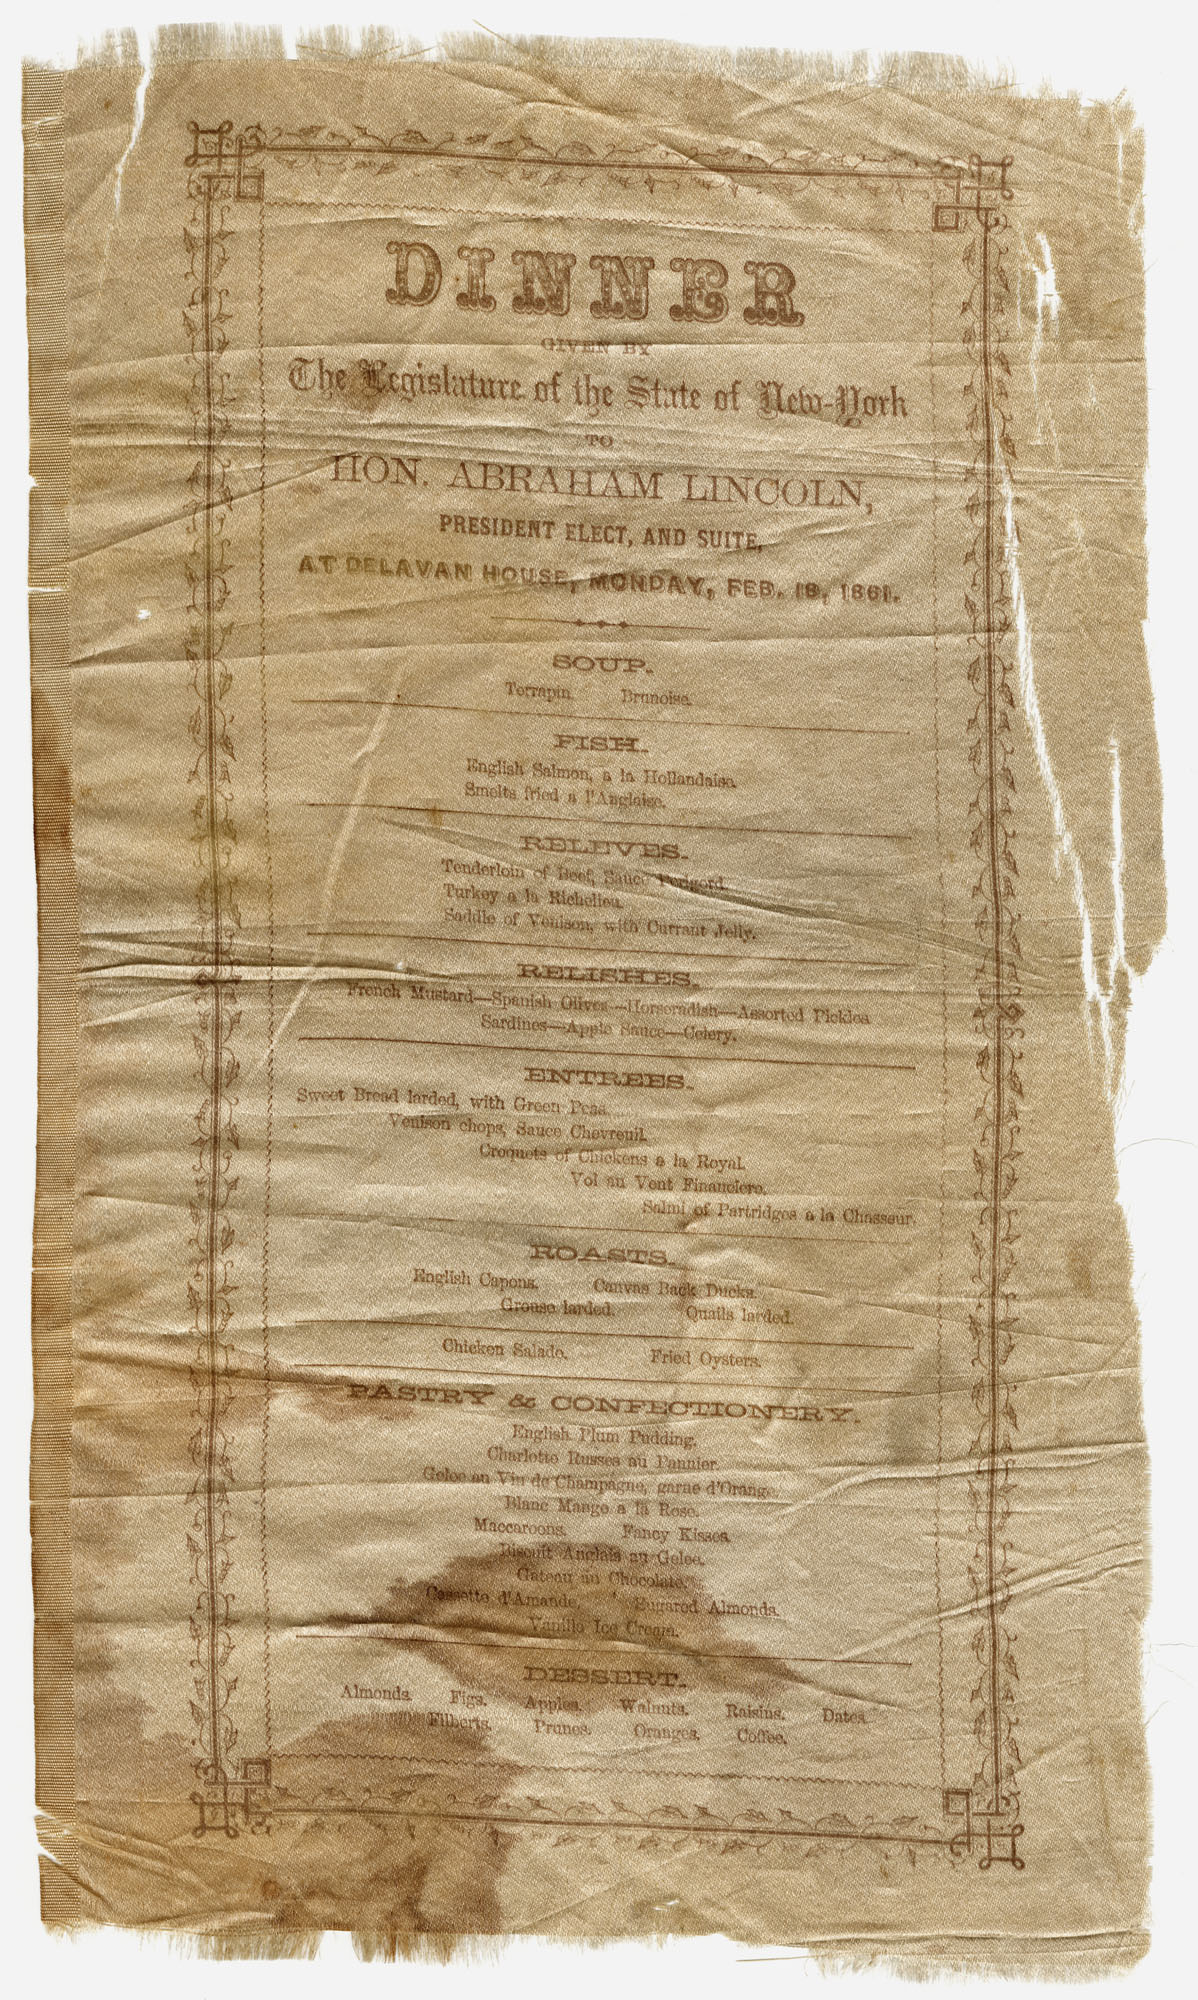 DINNER
GIVEN BY
The Legislature of the State of New-York
TO
HON. ABRAHAM LINCOLN,
PRESIDENT ELECT, AND SUITE,
AT DELAVAN HOUSE, MONDAY, FEB. 18, 1861.
SOUP.
Terrapin. Brunoise.
FISH.
English Salmon, a la Hollandaise.
Smelts fried a l'Anglaise.
RELEVES.
Tenderloin of Beef, Sauce Perigord.
Turkey a la Richelieu.
Saddle of Venison, with Currant Jelly.
RELISHES.
French Mustard—Spanish Olives—Horseradish—Assorted Pickles
Sardines—Apple Sauce—Celery.
ENTREES.
Sweet Bread larded, with Green Peas.
Venison chops, Sauce Chevreuil.
Croquets of Chickens a la Royal.
Vol au Vent Financiere.
Salmi of Partridges a la Chasseur.
ROASTS.
English Capons. Canvas Back Ducks.
Grouse larded. Quails larded.
Chicken Salade. Fried Oysters.
PASTRY & CONFECTIONERY.
English Plum Pudding.
Charlotte Russes au Pannier.
Gelee au Vin de Champagne, garne d'Orange.
Blanc Mange a la Rose.
Maccaroons. Fancy Kisses.
Biscuit Anglais au Gelee.
Gateau au Chocolate.
Cassette d'Amande. Sugared Almonds.
Vanille Ice Cream.
DESSERT.
Almonds. Figs. Apples. Walnuts. Raisins. Dates.
Filberts. Prunes. Oranges. Coffee.